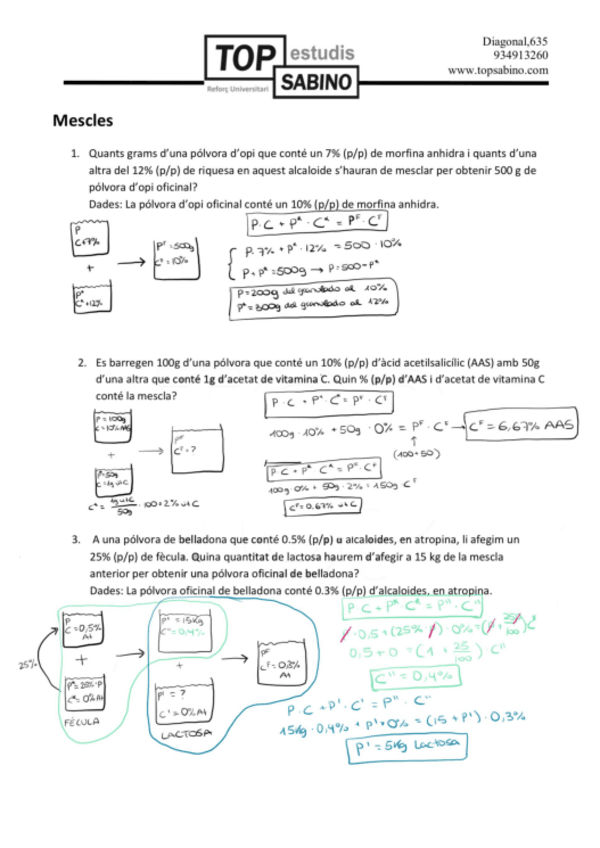 TOP estudis
SABINO
Reforç Universitari
Diagonal,635
934913260
www.topsabino.com
Mescles
1. Quants grams d'una pólvora d'opi que conté un 7% (p/p) de morfina anhidra i quants d'una
altra del 12% (p/p) de riquesa en aquest alcaloide s'hauran de mesclar per obtenir 500 g de
pólvora d'opi oficinal?
Dades: La pólvora d'opi oficinal conté un 10% (p/p) de morfina anhidra.
P · C + Pᴬ · Cᴬ = Pᶠ · Cᶠ
P
C=7%
+
Pᴬ
Cᴬ=12%
Pᶠ=500g
Cᶠ=10%
P. 7% + Pᴬ · 12% = 500 · 10%
P + Pᴬ = 500g → P=500-Pᴬ
P=200g del granulado al 10%
Pᴬ=300g del granulado al 12%
2. Es barregen 100g d'una pólvora que conté un 10% (p/p) d'àcid acetilsalicílic (AAS) amb 50g
d'una altra que conté 1g d'acetat de vitamina C. Quin % (p/p) d'AAS i d'acetat de vitamina C
conté la mescla?
P · C + Pᴬ · Cᴬ = Pᶠ · Cᶠ
P=100g
C=10% AAS
+
P=50g
C=1g vit C
Pᶠ
Cᶠ=?
100g · 10% + 50g · 0% = Pᶠ · Cᶠ → Cᶠ = 6,67% AAS
↑
(100+50)
P · C + Pᴬ Cᴬ = Pᶠ · Cᶠ
100g · 0% + 50g · 2% = 150g Cᶠ
Cᶠ=0.67% vit C
Cᴬ = 1g vit C / 50g · 100 = 2% vit C
3. A una pólvora de belladona que conté 0.5% (p/p) u alcaloides, en atropina, li afegim un
25% (p/p) de fècula. Quina quantitat de lactosa haurem d'afegir a 15 kg de la mescla
anterior per obtenir una pólvora oficinal de belladona?
Dades: La pólvora oficinal de belladona conté 0.3% (p/p) d'alcaloides, en atropina.
P C + Pᴬ Cᴬ = P'' · C''
P
C=0,5%
At
25%
+
Pᴬ=25% · P
Cᴬ=0% At
FÈCULA
P''=15Kg
C''=0,4%
+
P' = ?
C' = 0% At
LACTOSA
Pᶠ
Cᶠ=0,3%
At
P · 0.5 + (25% P) 0% = (P + 25P/100) C''
0,5 + 0 = (1 + 25/100) C''
C'' = 0,4%
P · C + P' · C' = P'' · C''
15Kg · 0,4% + P' · 0% = (15 + P') · 0,3%
P' = 5Kg Lactosa